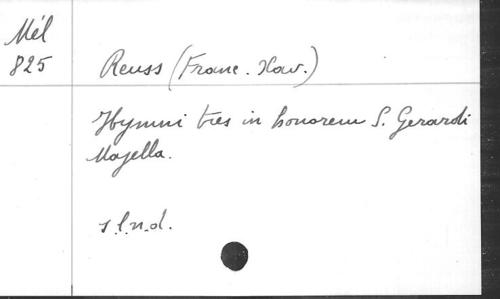 Mél
825
Reuss (Franc. Xav.)
Hymni tres in honorem S. Gerardi
Majella.
s.l.n.d.